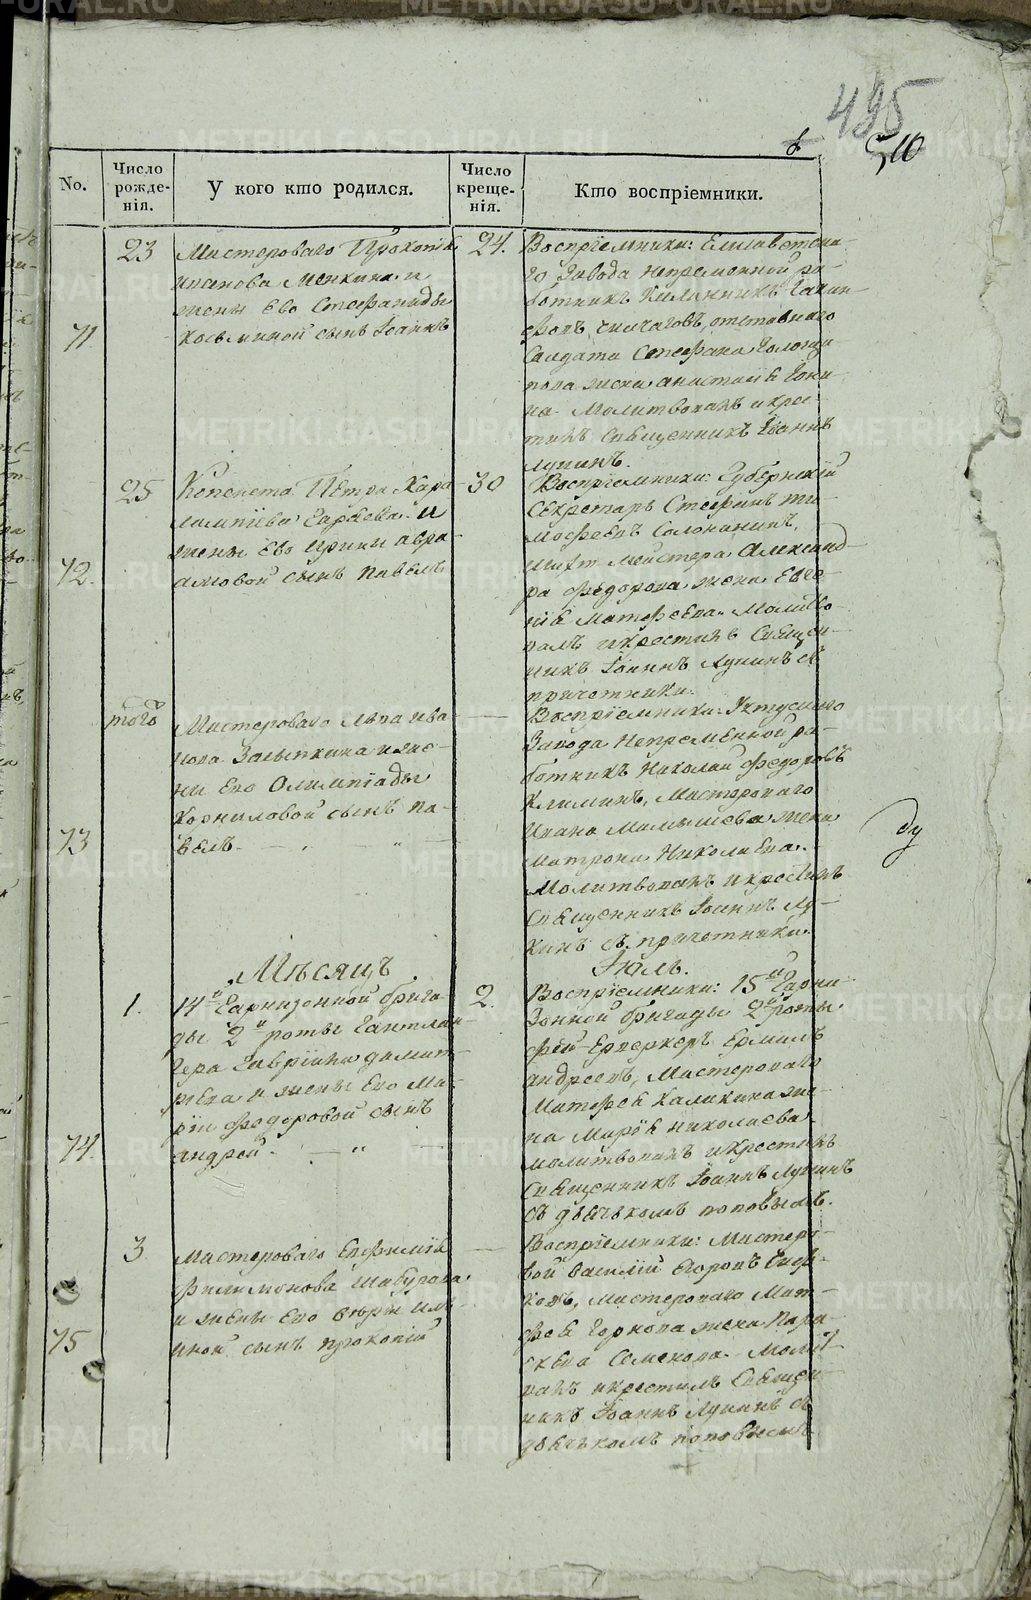 495
510
No.
Число рожде-нія.
У кого кто родился.
Число креще-нія.
Кто воспріемники.
71
23
Мастероваго Прокопія
Иванова Менкина и
жены Ево Стефаниды
Козьминой сынъ Іоаннъ
24.
Воспріемники: Елисаветска-
го завода непременной ра-
ботникъ
отставнаго
Салдата Стефана
жена
Молитвовалъ и крес-
тилъ Священникъ Іоаннъ
Лукинъ.
72.
25
Петра Хара-
лампіева Гарбева и
жены Ево Ирины Авра-
амовой сынъ Павелъ
30
Воспріемники: Губернскій
Секретарь Стефанъ Ти-
мофеевъ Солонининъ,
Шихтмейстера Александ-
ра Федорова жена Евге-
нія Матфеева. Молитво-
валъ и крестилъ Священ-
никъ Іоаннъ Лукинъ съ
причетники.
73
того
Мастероваго Льва Ива-
нова Залыпкина и же-
ны Ево Олимпіады
Корниловой сынъ Па-
велъ.
Воспріемники: Уктускаго
Завода Непременной ра-
ботникъ Николай Федоровъ
Климинъ, Мастероваго
Ивана Мамышева жена
Матрона Николаева.
Молитвовалъ и крестилъ
Священникъ Іоаннъ Лу-
кинъ съ причетники.
Мѣсяцъ
Іюль.
74.
1.
14й Гарнизонной брига-
ды 2й роты Гантлан-
гера Гавріила Димит-
ріева и жены Ево Ма-
ріи Федоровой сынъ
Андрей.
2.
Воспріемники: 15й Гарни-
зонной бригады 2й роты
Фей-Ерверкеръ Ермилъ
Андреевъ, Мастероваго
Матфея Каликина же-
на Марія Николаева
молитвовалъ и крестилъ
Священникъ Іоаннъ Лукинъ
съ дьячькомъ поповымъ.
75
3
Мастероваго Евфимія
Филимонова Шабурова
и жены Ево Вѣры Иль-
иной сынъ Прокопій
Воспріемники: Мастеро-
вой Василій Егоровъ
Мастероваго Мат-
фея Горнова жена Пара-
скева Семенова. Молит-
валъ и крестилъ Священ-
никъ Іоаннъ Лукинъ съ
дьячькомъ поповымъ